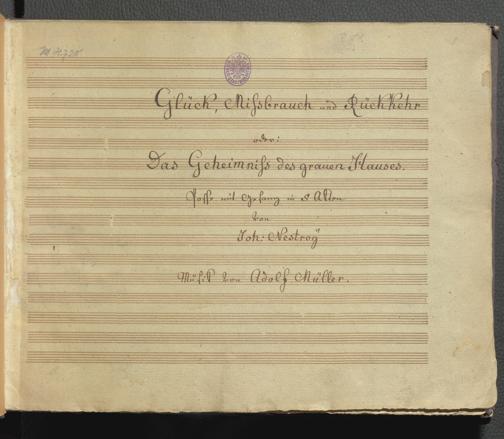 Glück, Missbrauch und Rückkehr
oder:
Das Geheimniss des grauen Hauses.
Posse mit Gesang in 5 Akten
von
Joh: Nestroy
Musik von Adolf Müller.